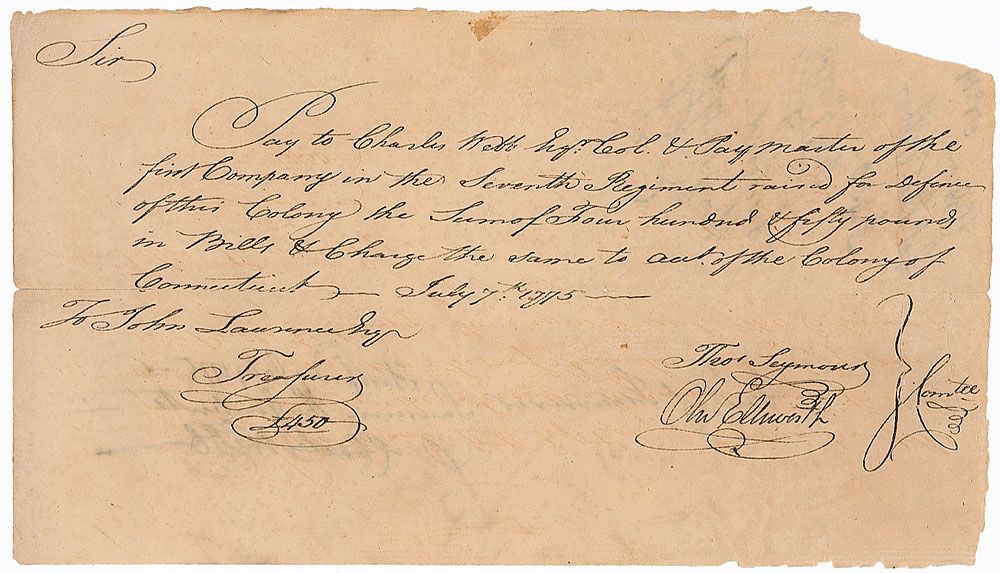 Sir
Pay to Charles Webb Esqr. Col. & Pay master of the
first Company in the Seventh Regiment raised for Defence
of this Colony the Sum of Four hundred & fifty pounds
in Bills & Charge the same to acct. of the Colony of
Connecticut — July 7th. 1775 —
To John Lawrence Esqr
Treasurer
£450
Thos Seymour
Olivr Ellsworth
Comtee